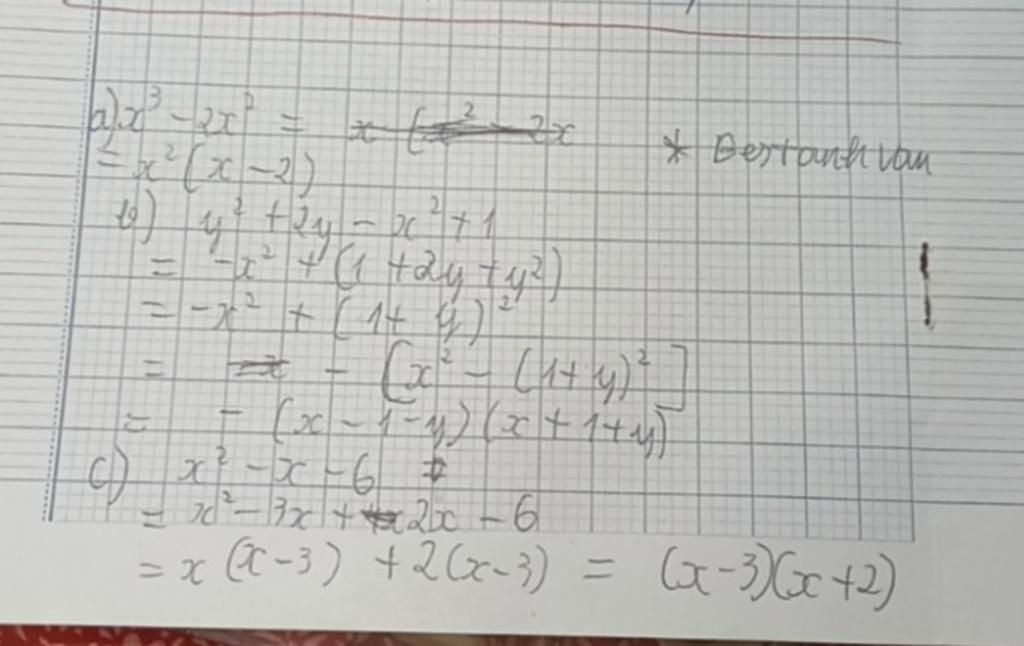 a) x³ - 2x² =
= x² (x - 2)
* Bestanhvan
b) y² + 2y - x² + 1
= -x² + (1 + 2y + y²)
= -x² + (1 + y)²
= - [x² - (1 + y)²]
= - (x - 1 - y) (x + 1 + y)
c) x² - x - 6
= x² - 3x + 2x - 6
= x (x - 3) + 2(x - 3) = (x - 3)(x + 2)